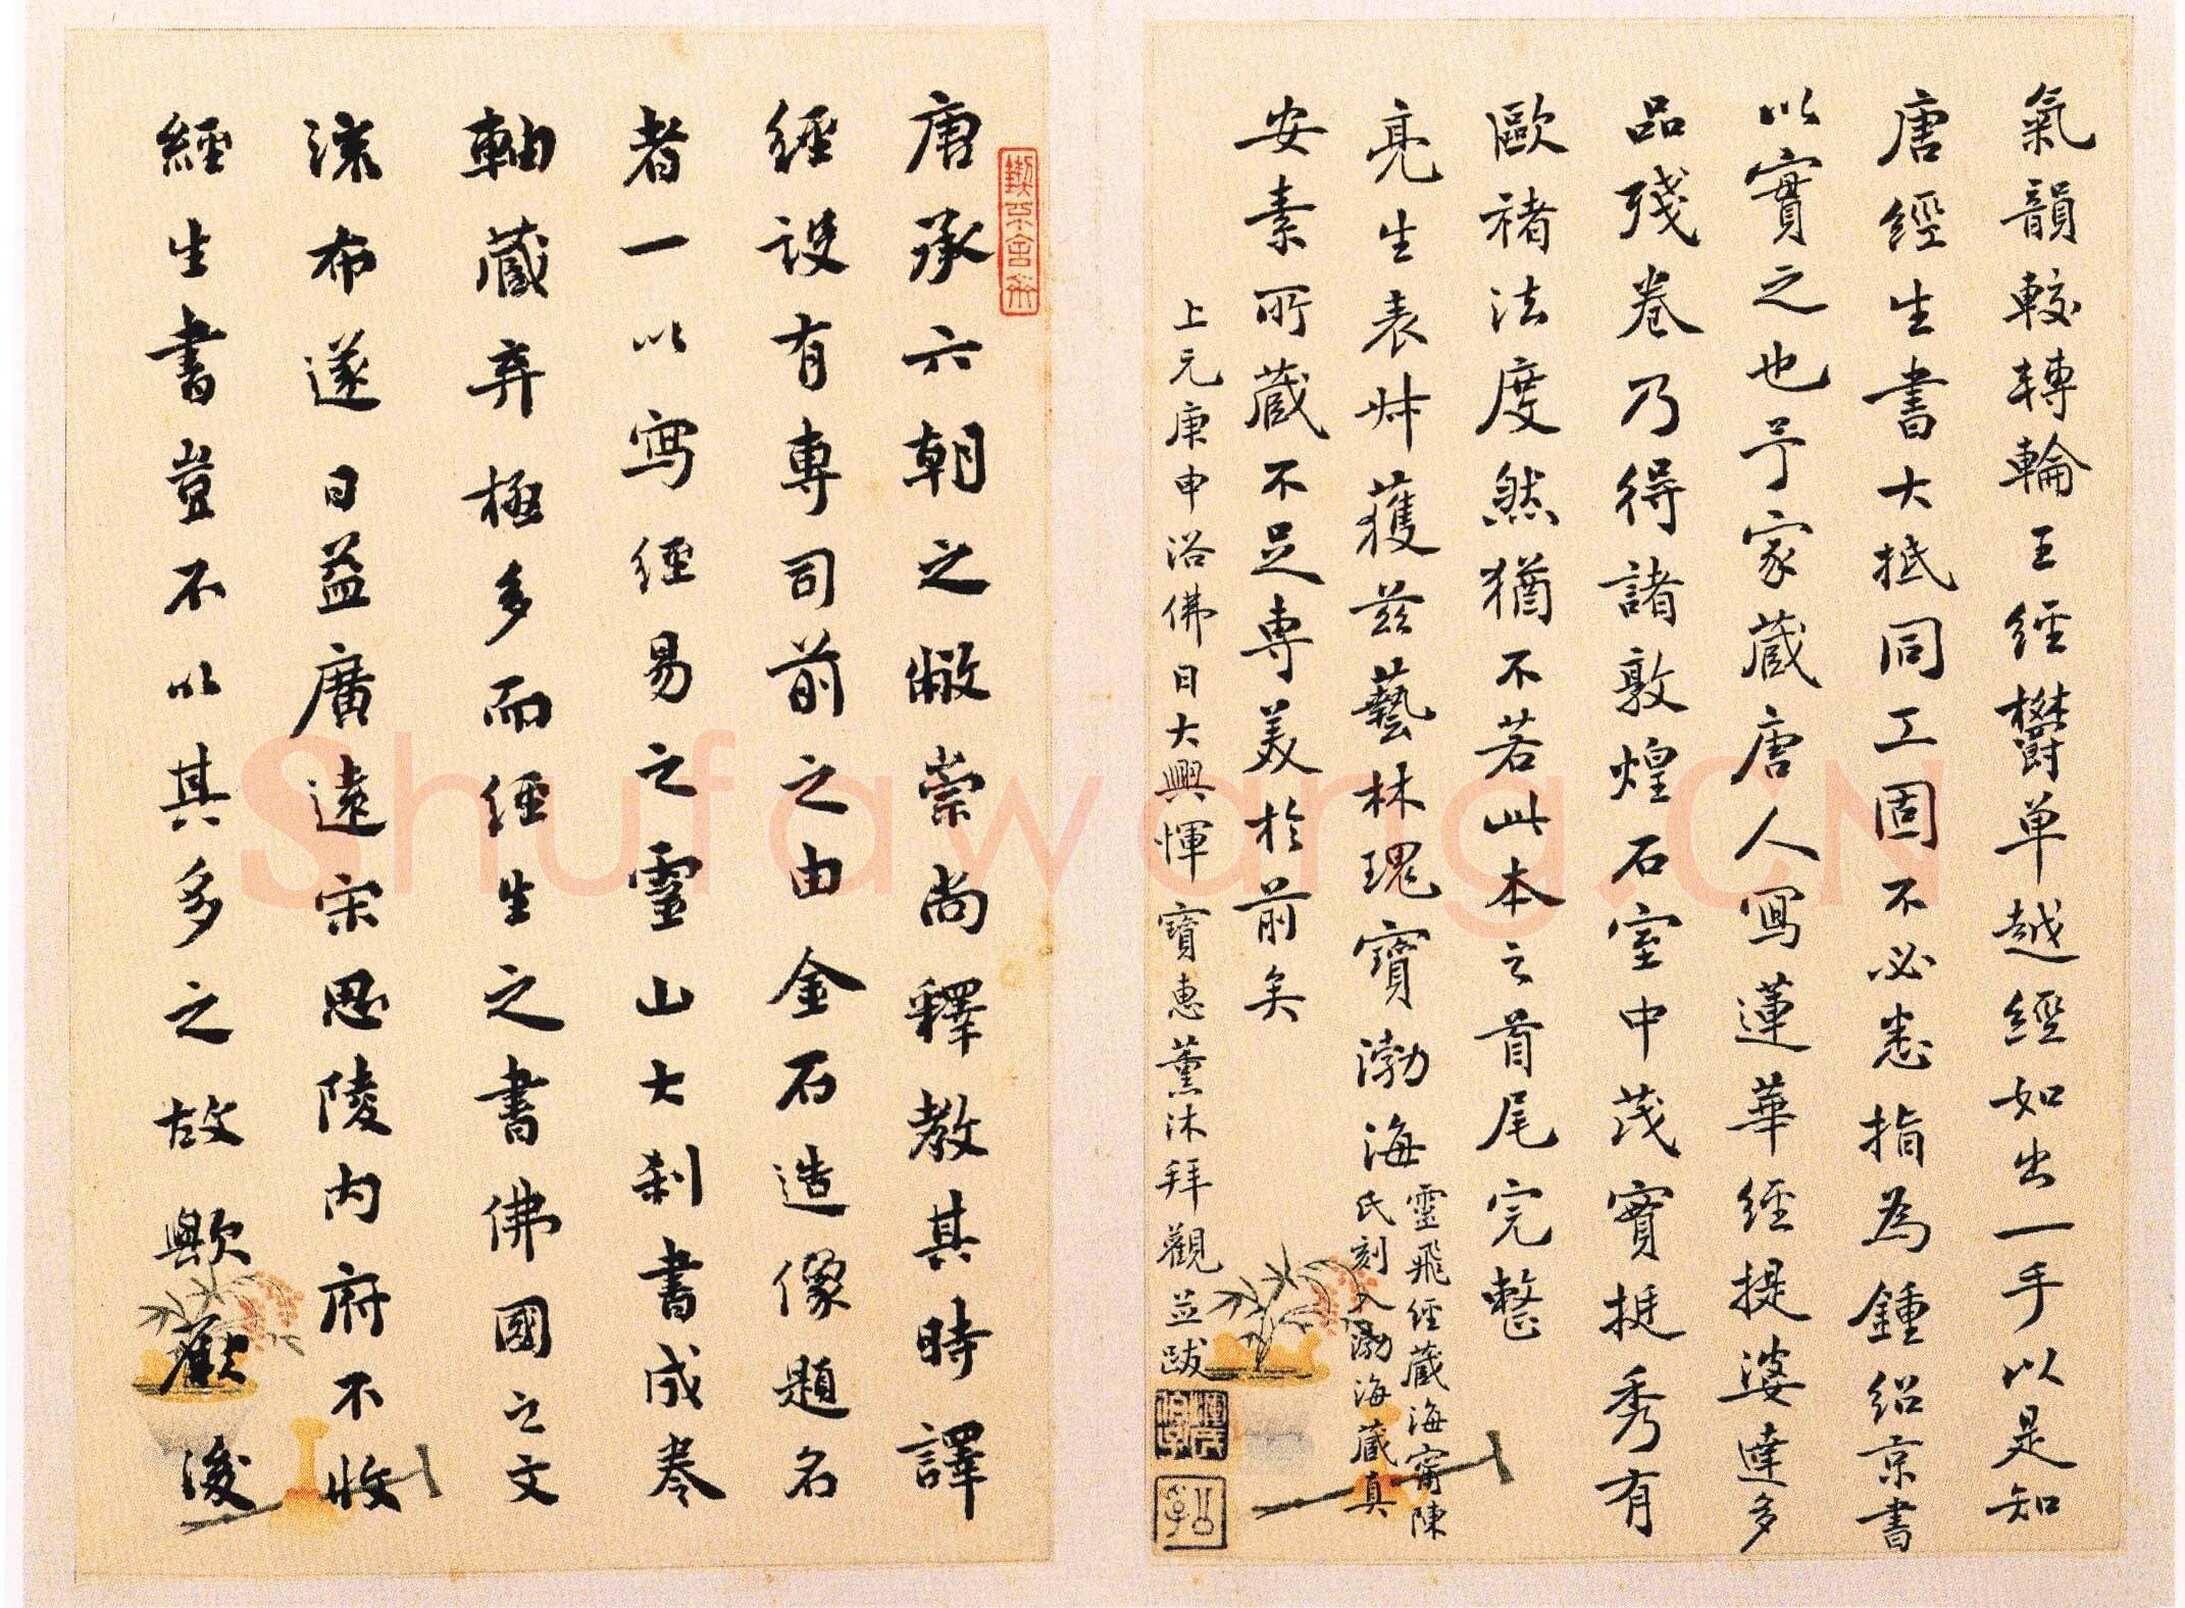 氣韻較轉輪王經欝單越經如出一手以是知
唐經生書大抵同工固不必悉指為鍾紹京書
以實之也予家藏唐人寫蓮華經提婆達多
品殘卷乃得諸敦煌石室中茂實挺秀有
歐褚法度然猶不若此本之首尾完整
亮生表叔獲茲藝林瑰寶渤海靈飛經藏海甯陳
氏刻入渤海藏真
安素所藏不足專美於前矣
上元庚申浴佛日大興惲寶惠薰沐拜觀並跋
唐承六朝之敝崇尚釋教其時譯
經設有專司前之由金石造像題名
者一以寫經易之靈山大刹書成卷
軸藏弆極多而經生之書佛國之文
流布遂日益廣遠宋思陵內府不收
經生書豈不以其多之故歟歡後
Shufawang.CN